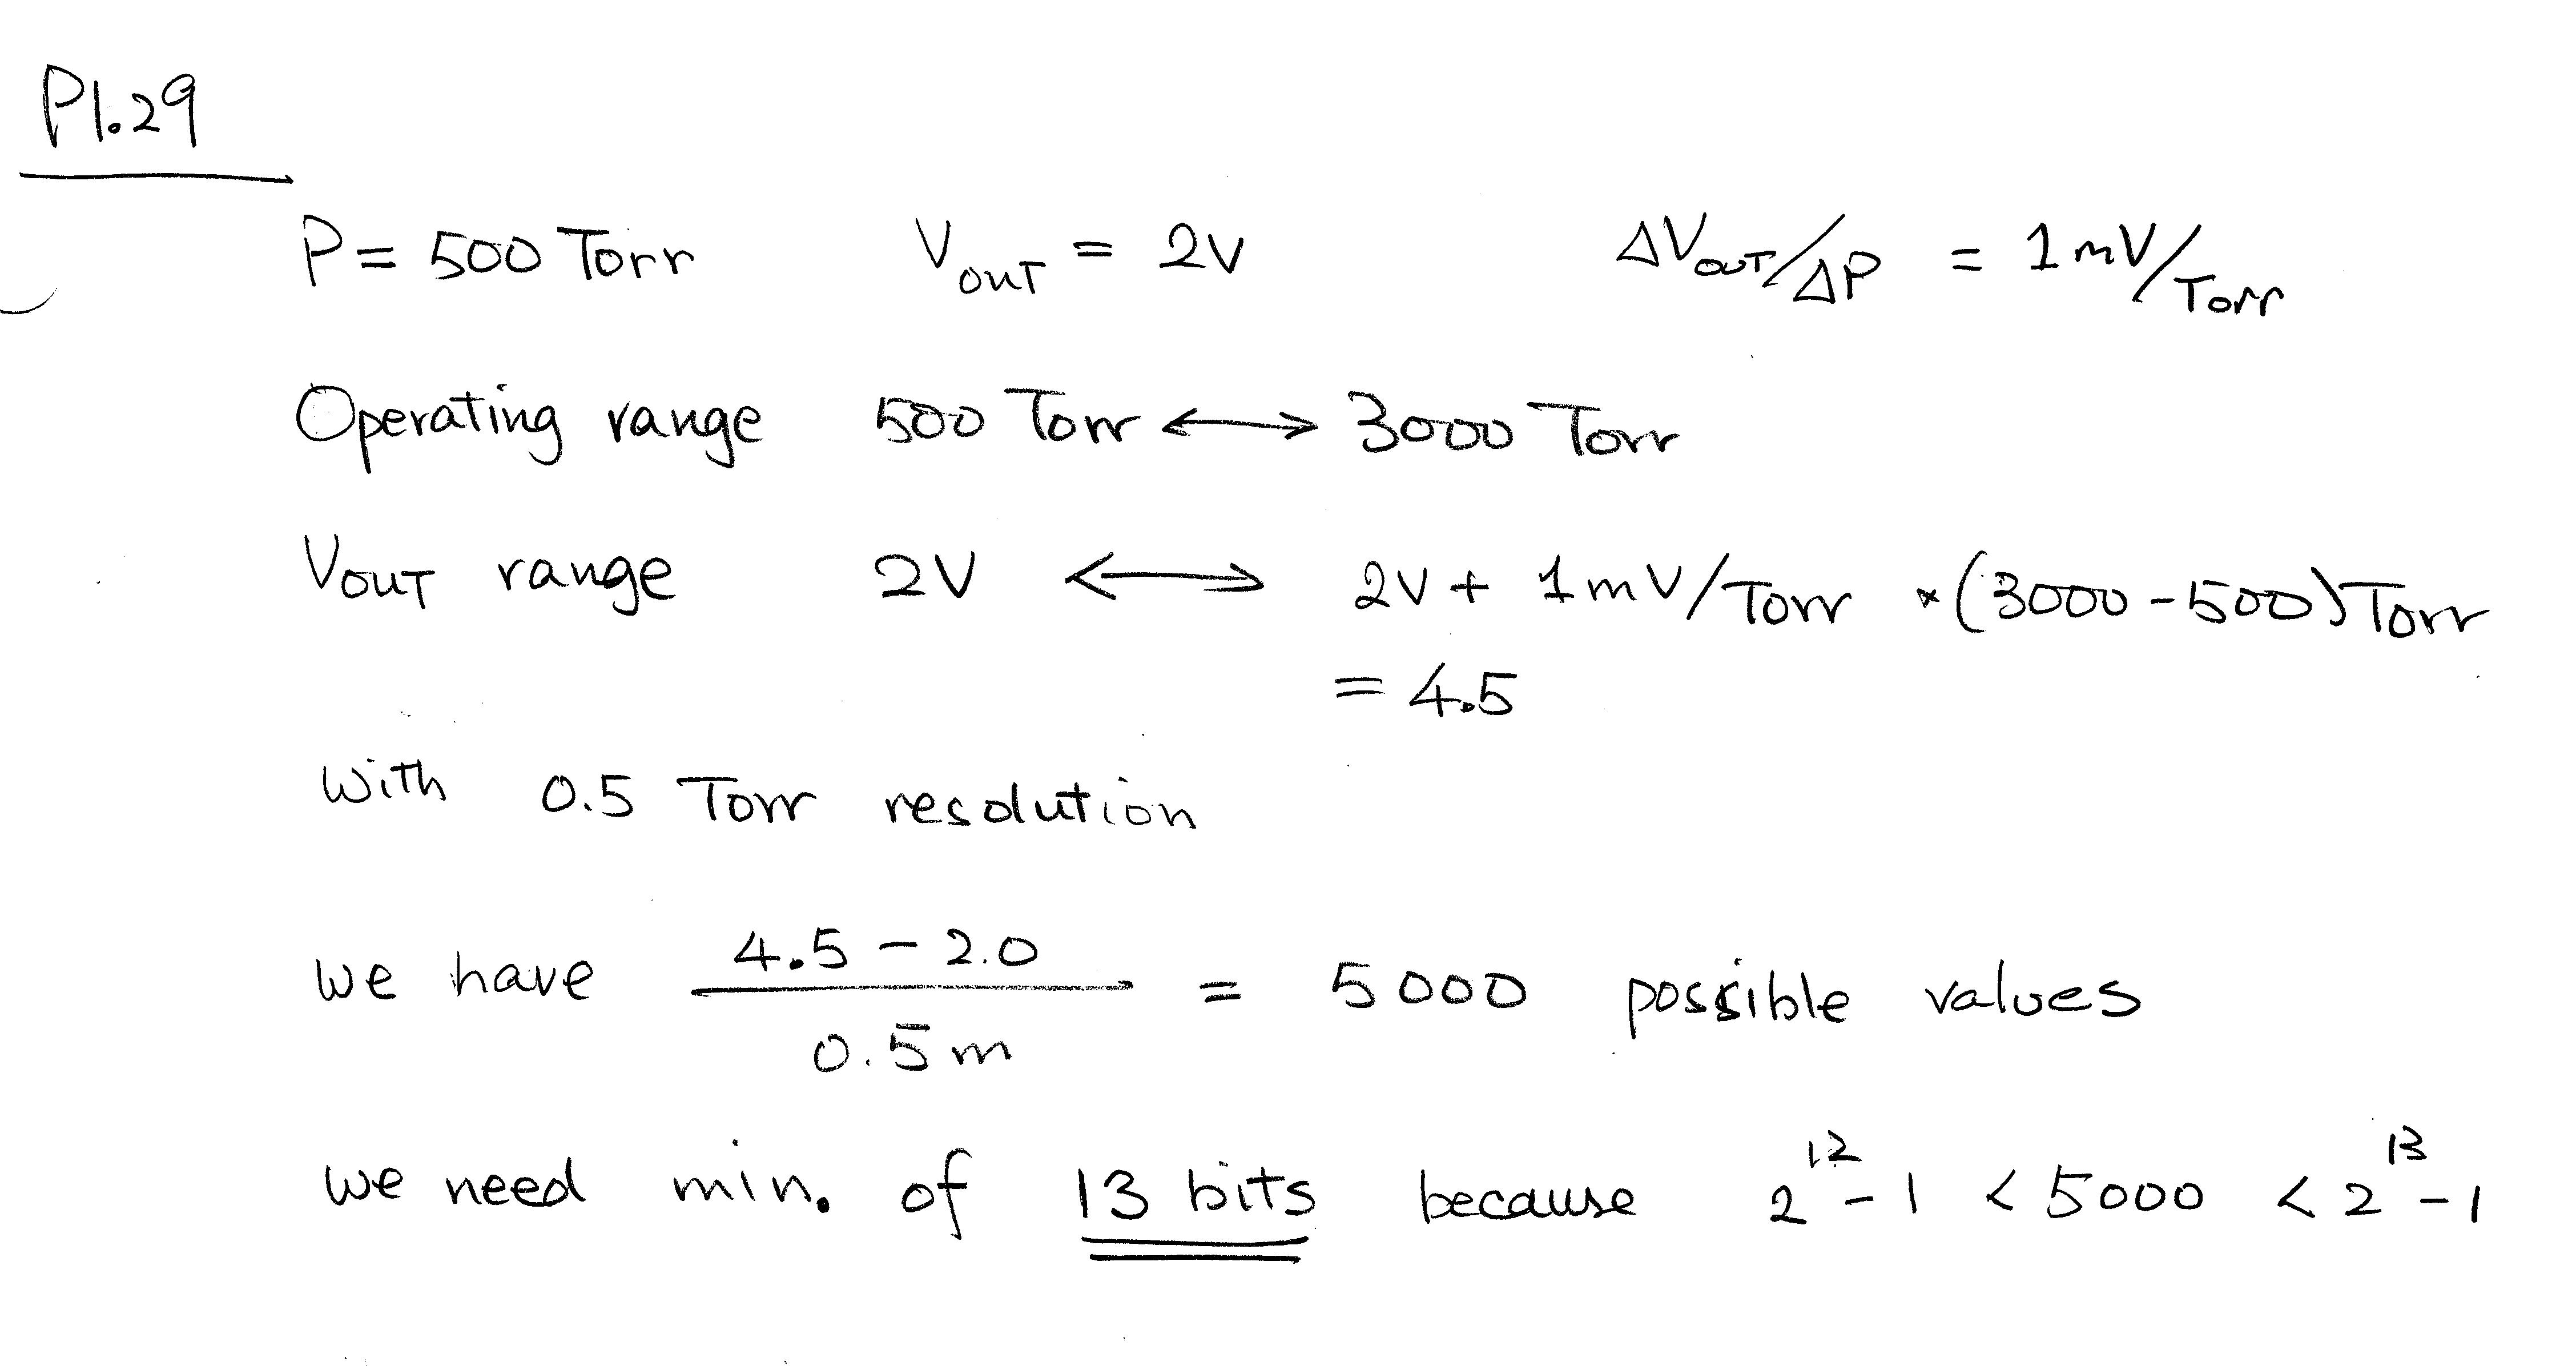 P1.29
P = 500 Torr V_OUT = 2V ΔV_OUT/ΔP = 1mV/Torr
Operating range 500 Torr ↔ 3000 Torr
V_OUT range 2V ↔ 2V + 1mV/Torr * (3000 - 500) Torr
= 4.5
with 0.5 Torr resolution
we have (4.5 - 2.0)/(0.5m) = 5000 possible values
we need min. of 13 bits because 2^12 - 1 < 5000 < 2^13 - 1